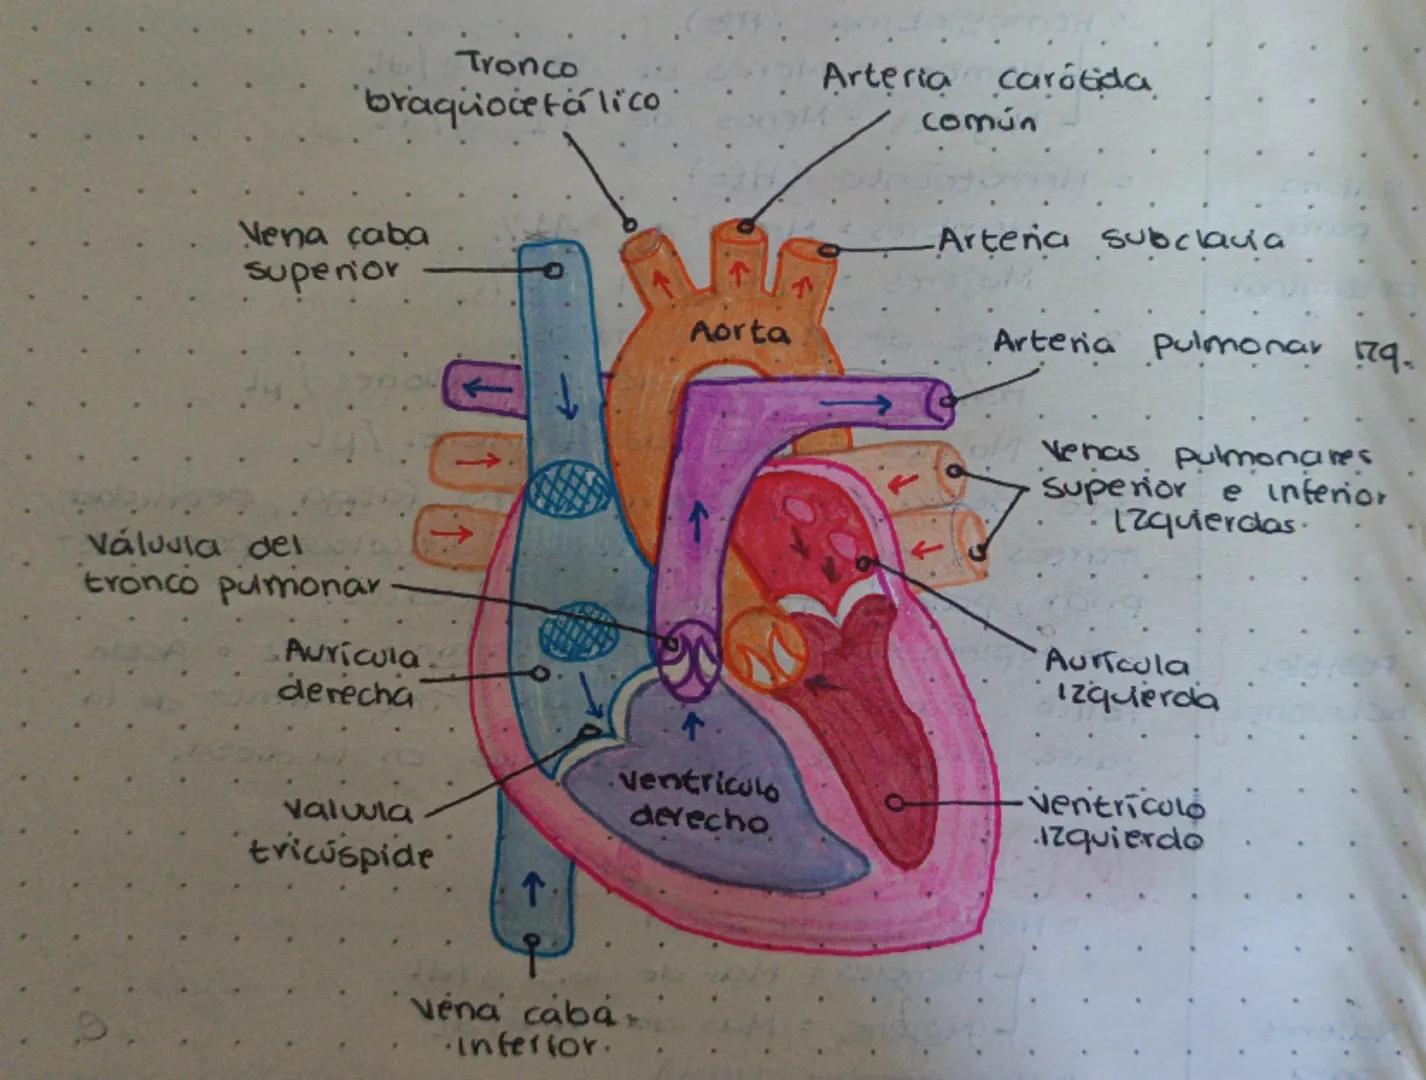 Tronco
braquiocefálico
Arteria carótida
común
Vena caba
superior
Arteria subclavia
Aorta
Arteria pulmonar izq.
Venas pulmonares
superior e inferior
izquierdas.
Válvula del
tronco pulmonar
Aurícula
derecha
Aurícula
izquierda
ventrículo
derecho
valvula
tricúspide
ventrículo
izquierdo
Vena caba
inferior.